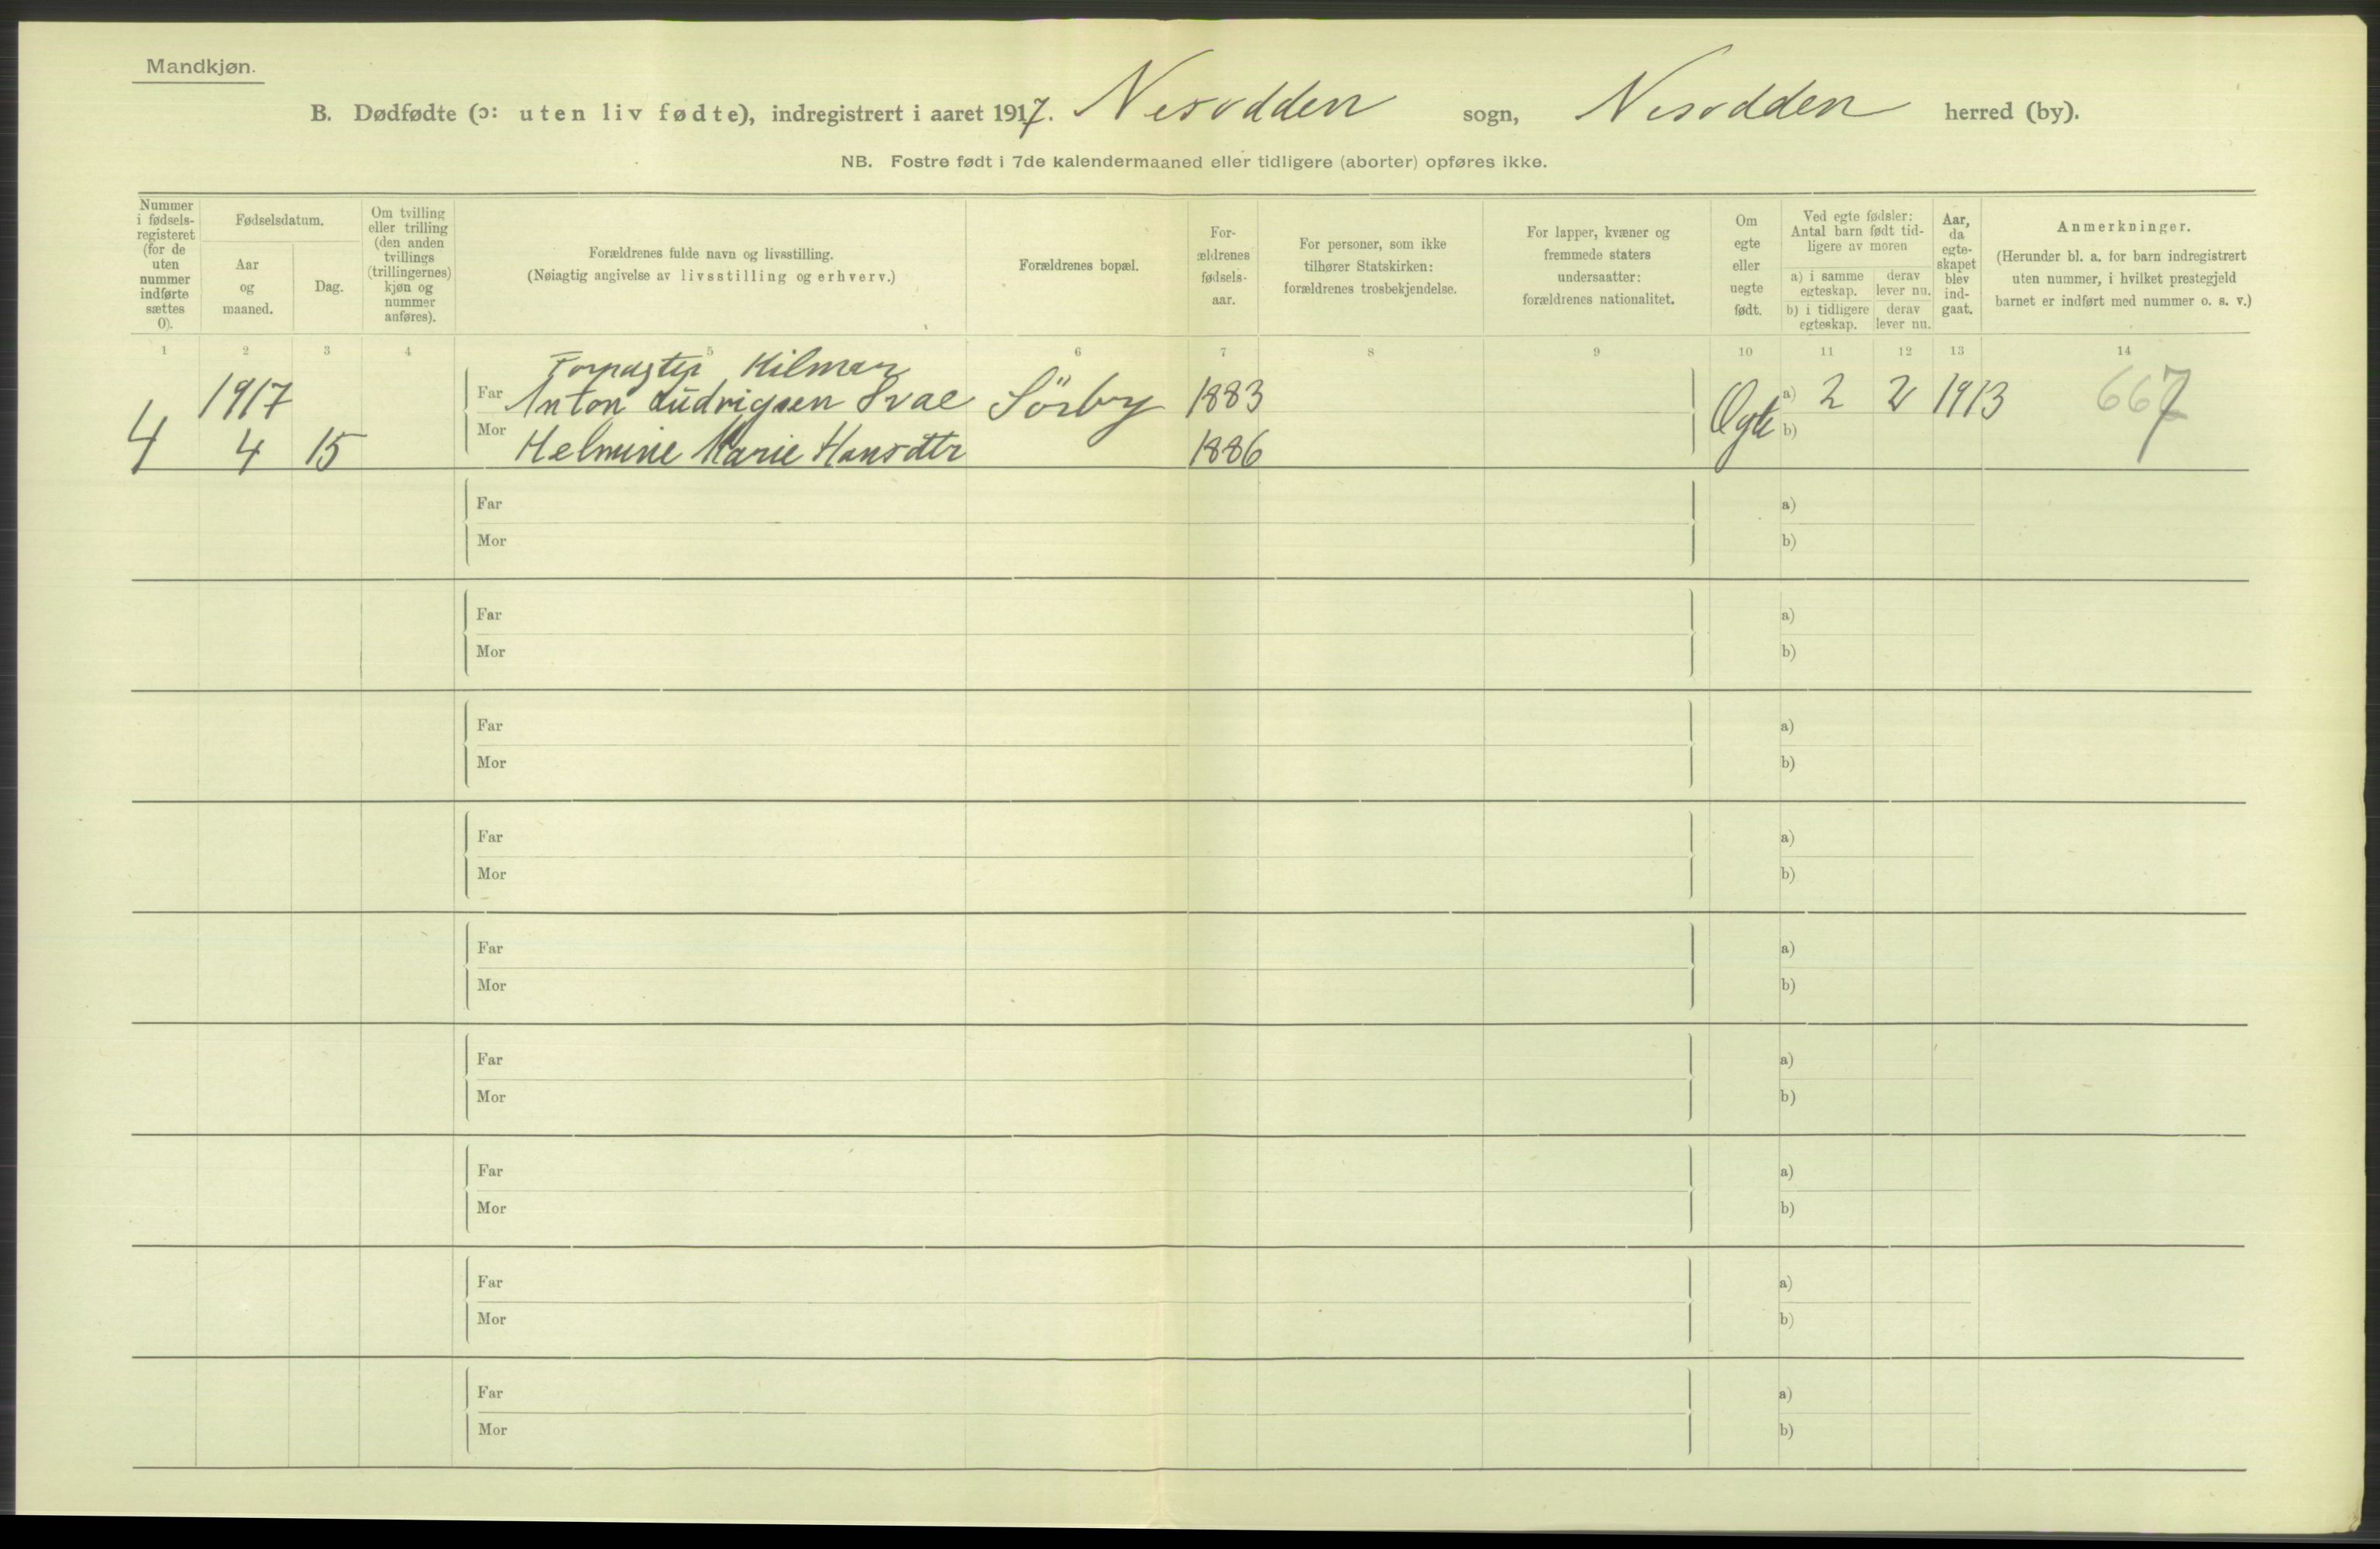 Mandkjøn.
B. Dødfødte (ɔ: uten liv fødte), indregistrert i aaret 1917. Nesodden sogn, Nesodden herred (by).
NB. Fostre født i 7de kalendermaaned eller tidligere (aborter) opføres ikke.
Nummer i fødsels-registeret (for de uten nummer indførte sættes 0).
Fødselsdatum.
Aar og maaned.
Dag.
Om tvilling eller trilling (den anden tvillings (trillingernes) kjøn og nummer anføres).
Forældrenes fulde navn og livsstilling.
(Nøiagtig angivelse av livsstilling og erhverv.)
Forældrenes bopæl.
For-ældrenes fødsels-aar.
For personer, som ikke tilhører Statskirken: forældrenes trosbekjendelse.
For lapper, kvæner og fremmede staters undersaatter: forældrenes nationalitet.
Om egte eller uegte født.
Ved egte fødsler: Antal barn født tid-ligere av moren
a) i samme egteskap.
derav lever nu.
b) i tidligere egteskap.
derav lever nu.
Aar, da egte-skapet blev ind-gaat.
Anmerkninger.
(Herunder bl. a. for barn indregistrert uten nummer, i hvilket prestegjeld barnet er indført med nummer o. s. v.)
1 2 3 4 5 6 7 8 9 10 11 12 13 14
Hilmar
1917 Far Anton Ludvigsen Svae Sörby 1883 a) 2 2 1913 667
4 4 15 Mor Helmine Marie Hansdtr 1886 Egte b)
Far a)
Mor b)
Far a)
Mor b)
Far a)
Mor b)
Far a)
Mor b)
Far a)
Mor b)
Far a)
Mor b)
Far a)
Mor b)
Far a)
Mor b)
Far a)
Mor b)